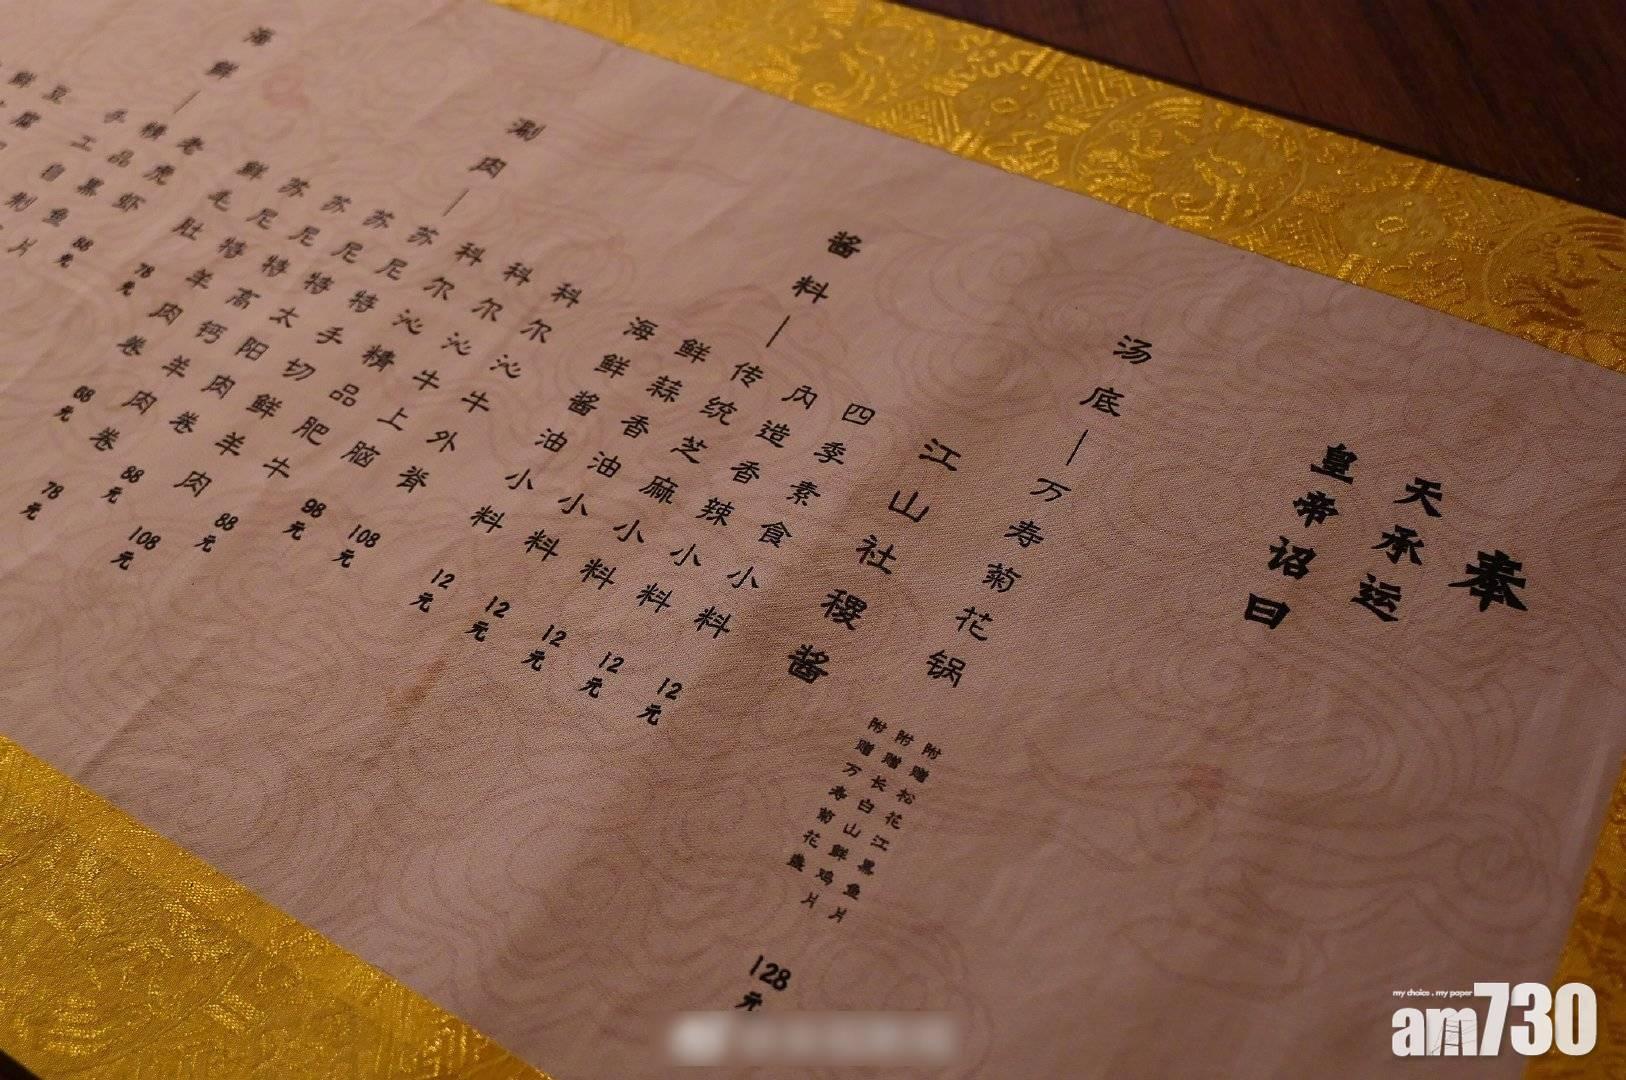 奉
天承运
皇帝诏曰
汤底—万寿菊花锅
附赠松花江黑鱼片
附赠长白山鲜鸡片
附赠万寿菊花盏
128元
江山社稷酱
酱料—
四季素食小料 12元
内造香辣小料 12元
传统芝麻小料 12元
鲜蒜香油小料 12元
海鲜酱油小料 12元
涮肉—
科尔沁牛外脊 108元
科尔沁牛上脑 98元
科尔沁精品肥牛 88元
苏尼特手切鲜羊肉 108元
苏尼特太阳肉卷 88元
苏尼特高钙羊肉卷 78元
苏尼特羊肉卷 68元
鲜毛肚 78元
海鲜—
老虎虾 88元
精品黑鱼片
手工自制
豆腐
鲜
my choice . my paper
am730